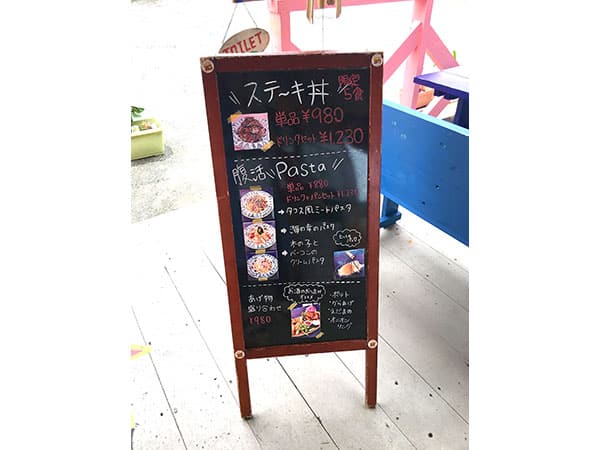 TOILET
ステーキ丼
限定
5食
単品¥980
ドリンクセット¥1,230
腹活 Pasta
単品 ¥880
ドリンク+パンセット¥1,230
→タコス風ミートパスタ
→海の幸のパスタ
木の子と
→ベーコンの
クリームパスタ
お酒のおつまみ
あげ物
盛り合わせ
¥980
・ポテト
・からあげ
・えだまめ
・オニオン
リング